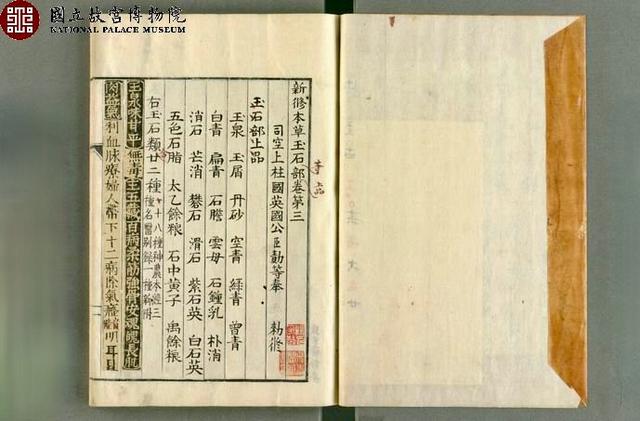 國立故宮博物院
NATIONAL PALACE MUSEUM
新修本草玉石部卷第三
司空上柱國英國公臣勣等奉 勑脩
玉石部上品
玉泉 玉屑 丹砂 空青 綠青 曾青
白青 扁青 石膽 雲母 石鍾乳 朴消
消石 芒消 礬石 滑石 紫石英 白石英
五色石脂 太乙餘粮 石中黃子 禹餘粮
右玉石類廿二種 十八種神農本經三
種名醫別錄一種新附
玉泉味甘平無毒主五藏百病柔筋強骨安魂魄長肌
肉益氣利血脉療婦人帶下十二病除氣癃明耳目